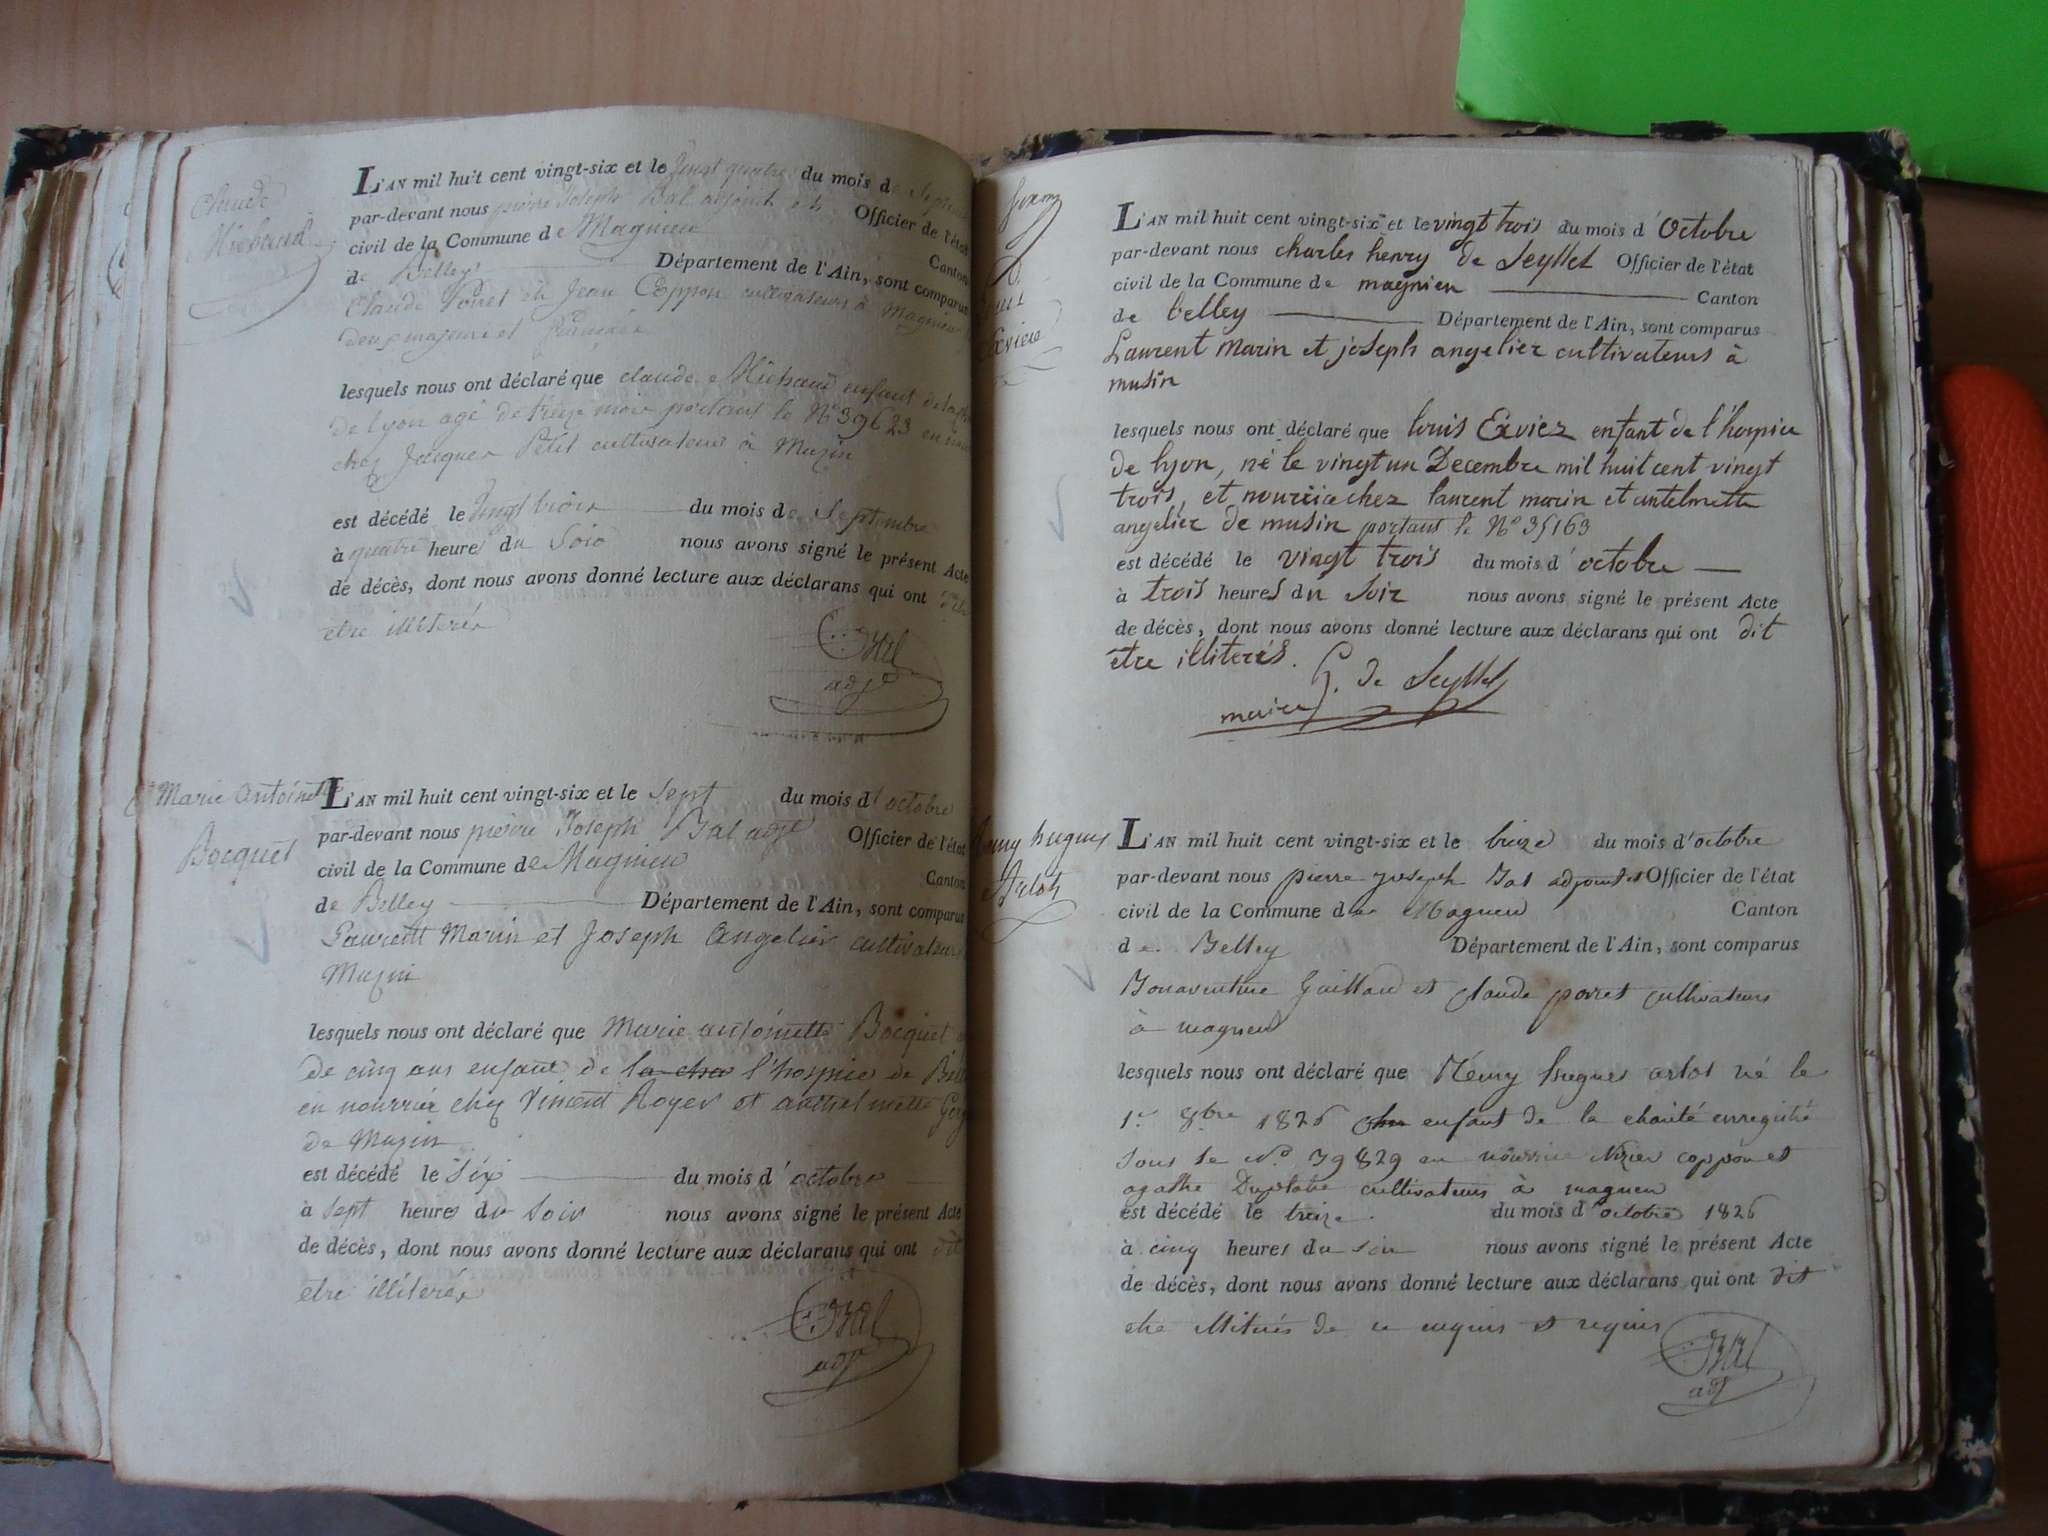 Claude
Michaud
L'AN mil huit cent vingt-six et le vingt quatre du mois de Septembre
par-devant nous pierre Joseph Bal adjoint et Officier de l'état
civil de la Commune de Magnieu Canton
de Belley Département de l'Ain, sont comparus
Claude Poiret et Jean Coppon cultivateurs à Magnieu
deux majeurs et
lesquels nous ont déclaré que claude Michaud enfant de la
de Lyon agé de treize mois portant le N° 39623 en
chez Jacques Petit cultivateur à Muzin
est décédé le vingt trois du mois de Septembre
à quatre heures du Soir nous avons signé le présent Acte
de décès, dont nous avons donné lecture aux déclarans qui ont dit
etre illiterés
Bal
adjt
Marie Antoinette
Bocquet
L'AN mil huit cent vingt-six et le Sept du mois d'octobre
par-devant nous pierre Joseph Bal adjt Officier de l'état
civil de la Commune de Magnieu Canton
de Belley Département de l'Ain, sont comparus
Laurent Marin et Joseph Angelier cultivateurs
Muzin
lesquels nous ont déclaré que Marie antoinette Bocquet
de cinq ans enfant de la cha l'hospice de
en nourrice chez Vincent Royer et anthelmette
de Muzin
est décédé le Six du mois d'octobre
à Sept heures du Soir nous avons signé le présent Acte
de décès, dont nous avons donné lecture aux déclarans qui ont dit
etre illiterés
Bal
adjt
L'AN mil huit cent vingt-six et le vingt trois du mois d'Octobre
par-devant nous charles henry de Seyssel Officier de l'état
civil de la Commune de magnieu Canton
de belley Département de l'Ain, sont comparus
Laurent Marin et joseph angelier cultivateurs à
musin
lesquels nous ont déclaré que louis Exviez enfant de l'hospice
de lyon, né le vingt un Decembre mil huit cent vingt
trois, et nourri chez laurent marin et antelmette
angelier de musin portant le N° 35163
est décédé le vingt trois du mois d'octobre
à trois heures du Soir nous avons signé le présent Acte
de décès, dont nous avons donné lecture aux déclarans qui ont dit
etre illiterés.
de Seyssel
maire
Remy hugues
Arlot
L'AN mil huit cent vingt-six et le treize du mois d'octobre
par-devant nous pierre joseph Bal adjoint et Officier de l'état
civil de la Commune de Magnieu Canton
de Belley Département de l'Ain, sont comparus
Bonaventure Gaillard et Claude poiret cultivateurs
à magnieu
lesquels nous ont déclaré que Rémy hugues arlot né le
1er 8bre 1826 enfant de la charité enregistré
sous le N° 39829 en nourrice Nizier coppon et
agathe cultivateurs à magnieu
est décédé le treize du mois d'octobre 1826
à cinq heures du soir nous avons signé le présent Acte
de décès, dont nous avons donné lecture aux déclarans qui ont dit
etre illiterés de ce enquis et requis
Bal
adjt